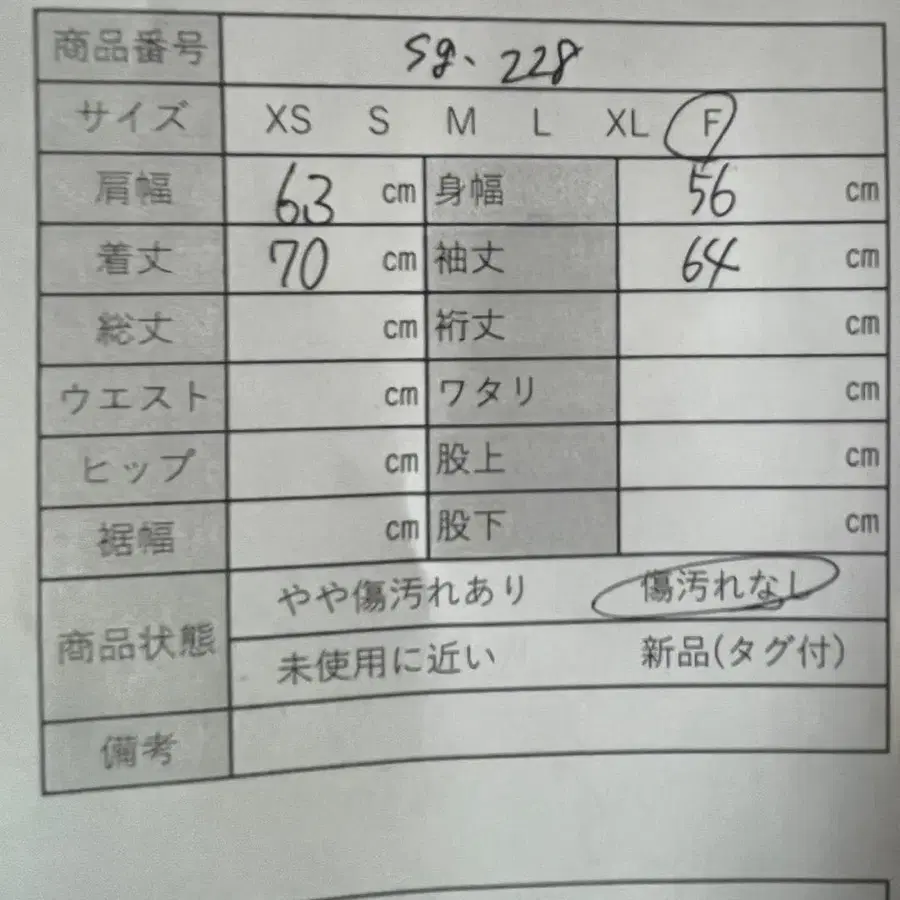 商品番号 sg、228
サイズ XS S M L XL F
肩幅 63 cm 身幅 56 cm
着丈 70 cm 袖丈 64 cm
総丈 cm 裄丈 cm
ウエスト cm ワタリ cm
ヒップ cm 股上 cm
裾幅 cm 股下 cm
商品状態 やや傷汚れあり 傷汚れなし
未使用に近い 新品(タグ付)
備考